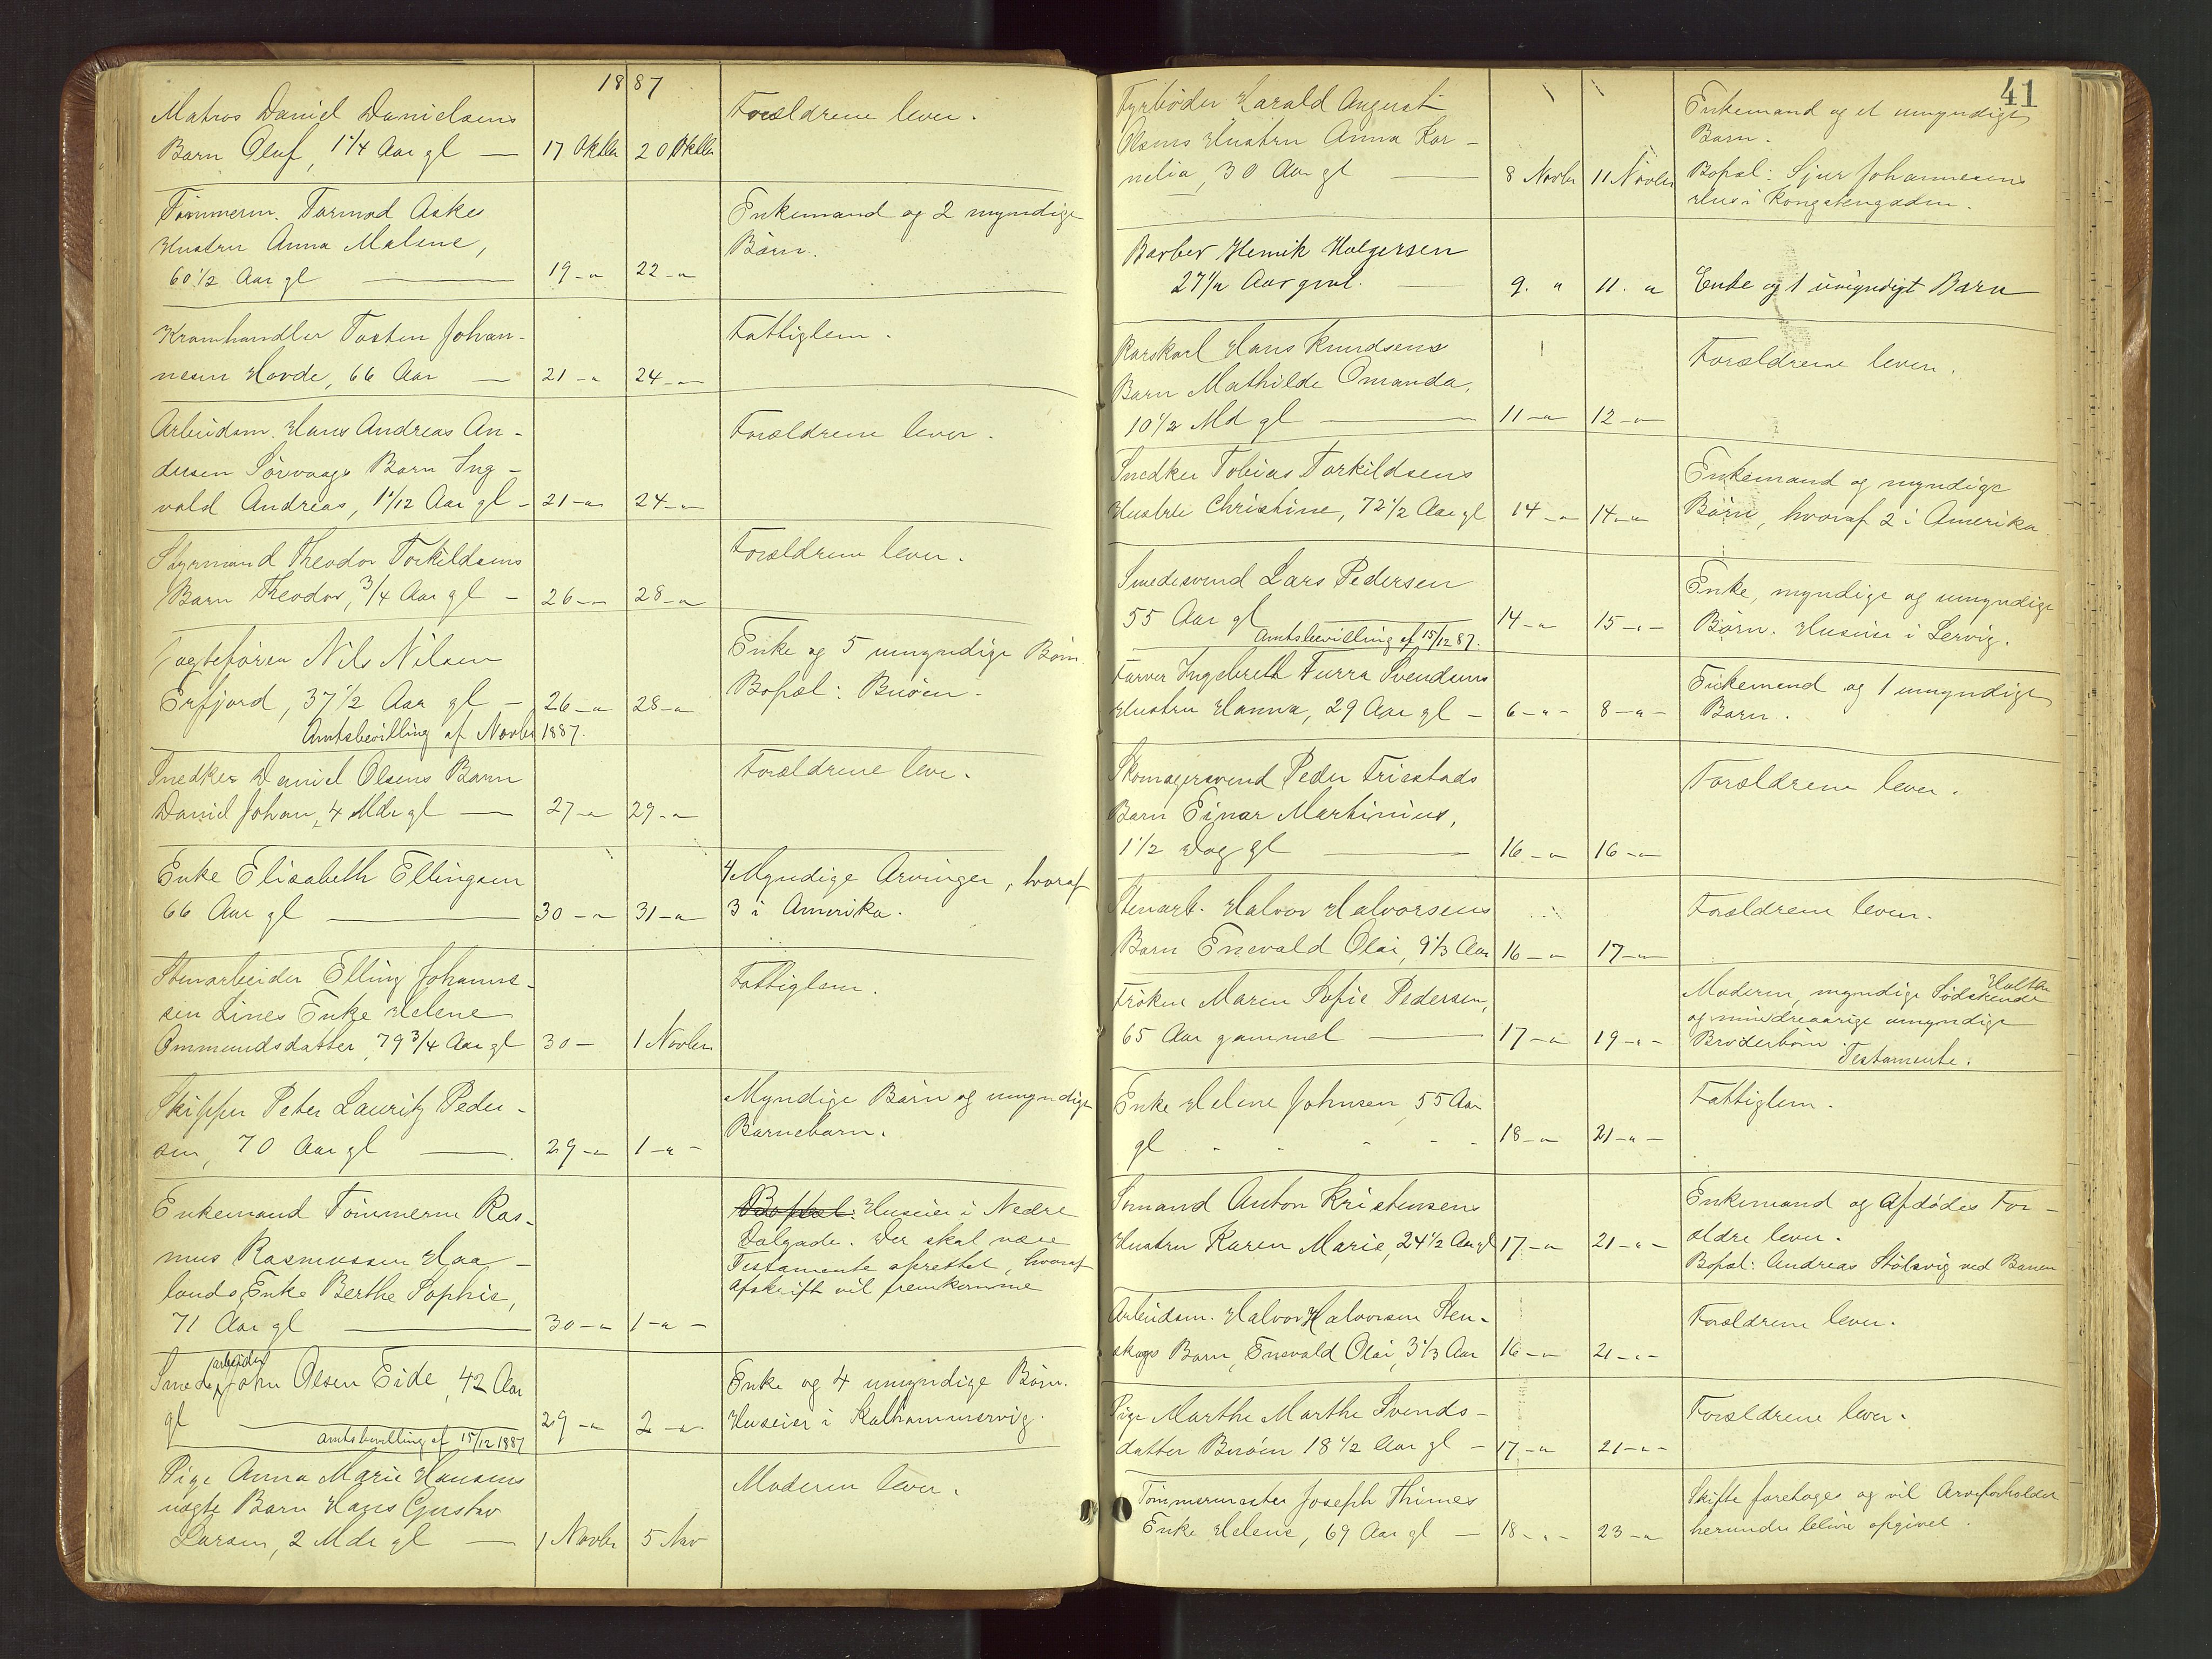 1887
Matros Daniel Danielsens
Barn Oluf, 1 1/4 Aar gl — 17 Oktbr 20 Oktbr Forældrene lever.
Tømmerm. Tormod Askes
Hustru Anna Malene,
60 1/2 Aar gl — 19 - " 22 - " Enkemand og 2 myndige
Børn.
Kramhandler Tosten Johan-
nesen Hovde, 66 Aar — 21 - " 24 - " Fattiglem.
Arbeidsm. Hans Andreas An-
dersen Sørvaags Barn Ing-
vald Andreas, 1 1/12 Aar gl - 21 - " 24 - " Forældrene lever.
Styrmand Theodor Torkildsens
Barn Theodor, 3/4 Aar gl - 26 - " 28 - " Forældrene lever.
Jagtefører Nils Nilsen
Erfjord, 37 1/2 Aar gl - 26 - " 28 - " Enke og 5 umyndige Børn.
Bopæl: Buøen.
Amtsbevilling af Novbr 1887.
Snedker Daniel Olsens Barn
Daniel Johan, 4 Mdr gl — 27 - " 29 - " Forældrene lever.
Enke Elisabeth Ellingsen
66 Aar gl — 30 - " 31 - " 4 Myndige Arvinger, hvoraf
3 i Amerika.
Stenarbeider Elling Johanne-
sen Lines Enke Helene
Ommundsdatter, 79 3/4 Aar gl 30 - 1 Novbr Fattiglem.
Skipper Peter Lauritz Peder-
sen, 70 Aar gl — 29 - " 1 - " - Myndige Børn og umyndige
Barnebarn.
Enkemand Tømmerm Ras-
mus Rasmussen Haa-
lands Enke Berthe Sophie,
71 Aar gl — 30 - " 1 - " - Bopæl: Huseier i Nedre
Dalgade. Der skal være
Testamente oprettet, hvoraf
Afskrift vil fremkomme
Smedarbeider John Olsen Eide, 42 Aar
gl — 29 - " 2 - " Enke og 4 umyndige Børn.
Huseier i Kalhammervig.
Amtsbevilling af 15/12 1887
Pige Anna Marie Hansens
uægte Barn Hans Gustav
Larsen, 2 Mdr gl — 1 Novbr 5 Nov Moderen lever.
41
Fyrbøder Harald August
Olsens Hustru Anna Kor-
nelia, 30 Aar gl — 8 Novbr 11 Novbr Enkemand og et umyndigt
Barn.
Bopæl: Sjur Johannesens
Hus i Kongstengaden.
Barber Henrik Holgersen
27 1/2 Aar gml. — 9. " 11. " Enke og 1 umyndigt Barn
Karskarl Hans Knudsens
Barn Mathilde Omanda,
10 1/2 Md gl — 11 - " 12 - " Forældrene lever.
Snedker Tobias Torkildsens
Hustru Christine, 72 1/2 Aar gl 14 - " 14 - " Enkemand og myndige
Børn, hvoraf 2 i Amerika
Smedesvend Lars Pedersen
55 Aar gl 14 - " 15 - " - Enke, myndige og umyndige
Børn. Huseier i Lervig.
Amtsbevilling af 15/12 87.
Farver Ingebreth Furra Svendsens
Hustru Hanna, 29 Aar gl - 6 - " - 8 - " - Enkemand og 1 umyndigt
Barn.
Skomagersvend Peder Friestads
Barn Einar Martinius,
1 1/2 Dag gl — 16 - " 16 - " Forældrene lever.
Stenarb. Halvor Halvorsens
Barn Enevald Olai, 9 1/3 Aar 16 - " 17 - " Forældrene lever.
Frøken Maren Sofie Pedersen,
65 Aar gammel — 17 - " 19 - " - Moderen, myndige Halv Sødskende
og mindreaarige umyndige
Broderbørn.
Testamente.
Enke Helene Johnsen, 55 Aar
gl - - - - - 18 - " 21 - " - Fattiglem.
Sømand Anton Kristensens
Hustru Karen Marie, 24 1/2 Aar gl 17 - " 21 - " - Enkemand og Afdødes For-
ældre lever.
Bopæl: Andreas Stølsvig ved Banen
Arbeidsm. Halvor Halvorsen Sten-
skogs Barn, Enevald Olai, 3 1/3 Aar 16 - " 21 - " - Forældrene lever.
Pige Marthe Marthe Svends-
datter Buøen 18 1/2 Aar gl - 17 - " 21 - " - Forældrene lever.
Tømmermester Joseph Thimes
Enke Helene, 69 Aar gl — 18 - " - 23 - " Skifte foretages og vil Arveforholdet
herunder blive opgivet.